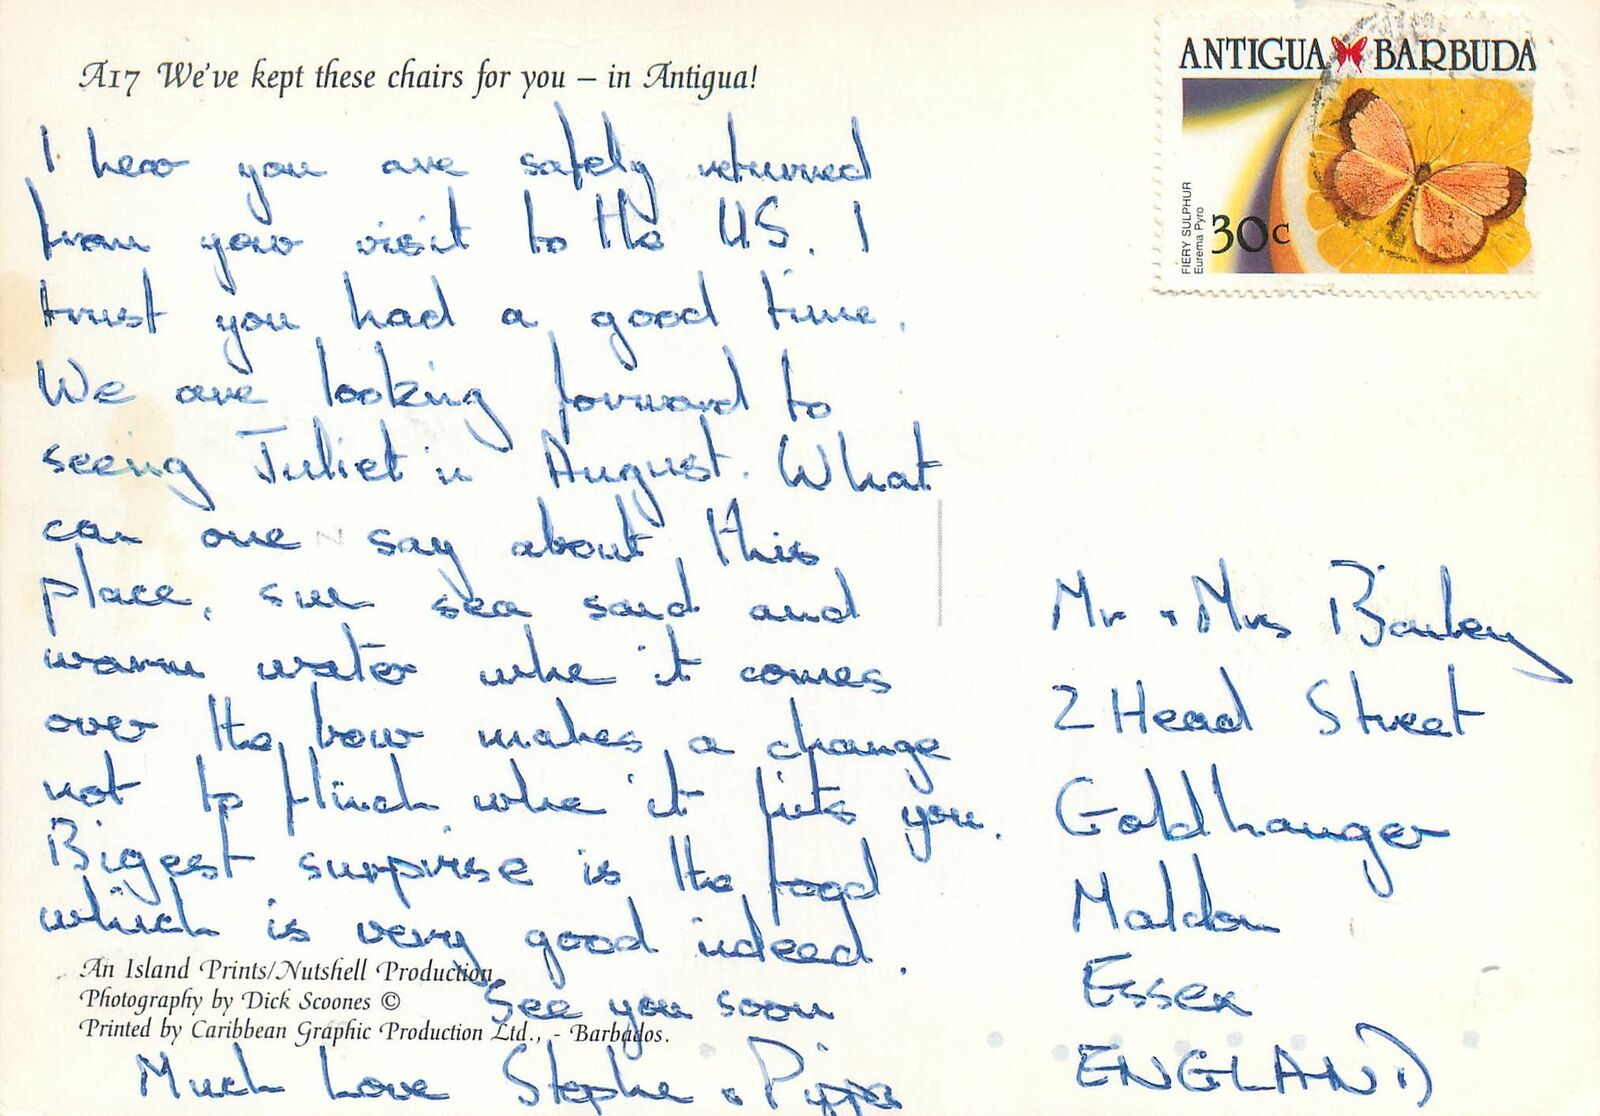 A17 We've kept these chairs for you – in Antigua!
ANTIGUA BARBUDA
FIERY SULPHUR
Eurema Pyro
30c
I hear you are safely returned
from your visit to the US. I
trust you had a good time.
We are looking forward to
seeing Juliet in August. What
can one say about this
place, sun sea sand and
warm water whe it comes
over the bow makes a change
not to flinch whe it hits you.
Bigest surprise is the food
which is very good indeed.
See you soon
Much Love Stephe & Pippa
An Island Prints/Nutshell Production
Photography by Dick Scoones ©
Printed by Caribbean Graphic Production Ltd., - Barbados.
Mr & Mrs
2 Head Street
Goldhanger
Maldon
Essex
ENGLAND